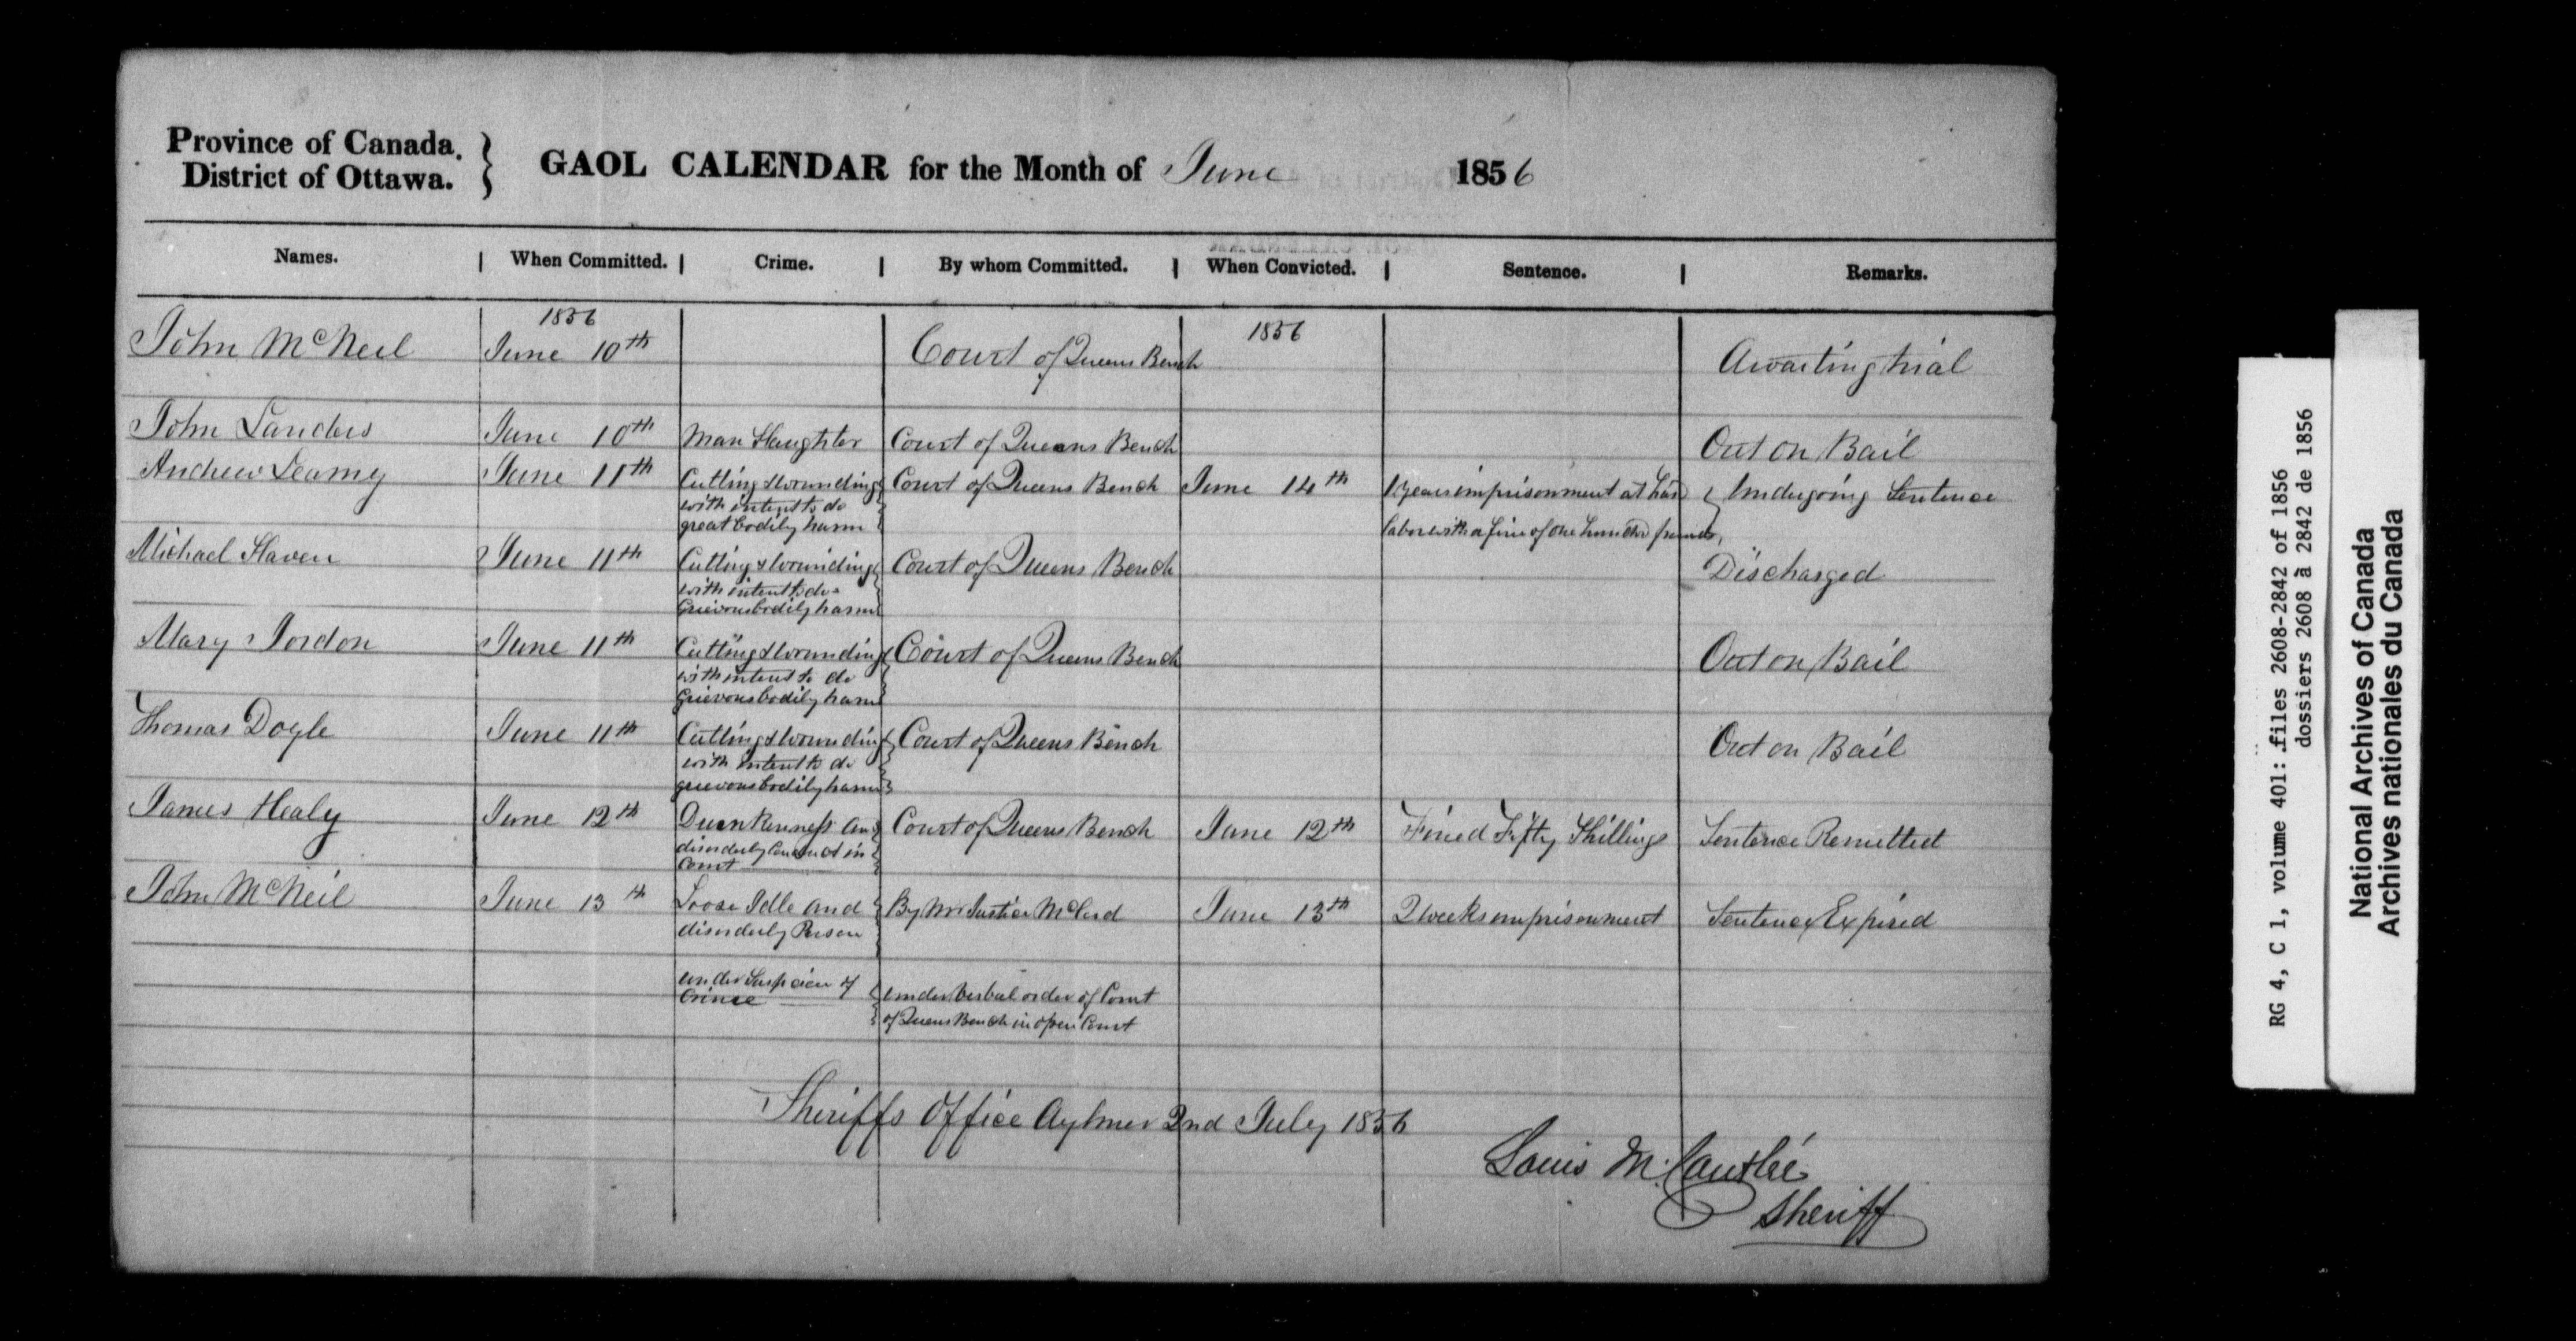 Province of Canada. } GAOL CALENDAR for the Month of June 1856
District of Ottawa.
Names. | When Committed. | Crime. | By whom Committed. | When Convicted. | Sentence. | Remarks.
1856 1856
John McNeil June 10th Court of Queens Bench Awaiting trial
John Landers June 10th Man Slaughter Court of Queens Bench Out on Bail
Andrew Leamy June 11th Cutting & wounding Court of Queens Bench June 14th 1 years imprisonment at har Undergoing Sentence
with intent to do
great bodily harm labor with a fine of one hundred
Michael Slaven June 11th Cutting & wounding Court of Queens Bench Discharged
with intent to do
Grievous bodily harm
Mary Jordon June 11th Cutting & wounding Court of Queens Bench Out on Bail
with intent to do
Grievous bodily harm
Thomas Doyle June 11th Cutting & wounding Court of Queens Bench Out on Bail
with intent to do
grievous bodily harm
James Healy June 12th Drunkenness and Court of Queens Bench June 12th Fined Fifty Shillings Sentence Remitted
disorderly Conduct in
Court
John McNeil June 13th Loose Idle and By Mr Justice McCord June 13th 2 weeks imprisonment Sentence Expired
disorderly Person
under Suspicion of under verbal order of Court
Crime of Queens Bench in open Court
Sheriffs Office Aylmer 2nd July 1856
Louis M. Coutlée
Sheriff
RG 4, C 1, volume 401: files 2608-2842 of 1856
dossiers 2608 à 2842 de 1856
National Archives of Canada
Archives nationales du Canada